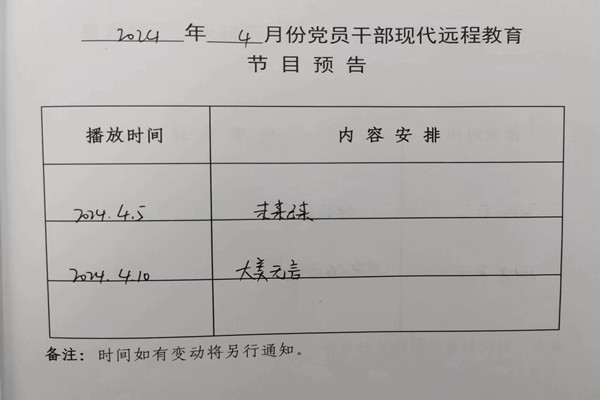 2024 年 4 月份党员干部现代远程教育
节目预告
播放时间 内容安排
2024.4.5 未来已来
2024.4.10 大美无言
备注：时间如有变动将另行通知。